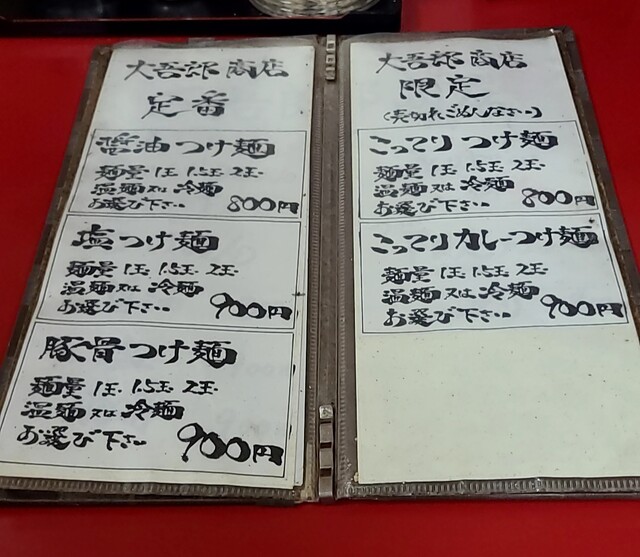 大吾郎商店
定番
醤油つけ麺
麺量 1玉 1.5玉 2玉
温麺又は冷麺
お選び下さい 800円
塩つけ麺
麺量 1玉 1.5玉 2玉
温麺又は冷麺
お選び下さい 900円
豚骨つけ麺
麺量 1玉 1.5玉 2玉
温麺又は冷麺
お選び下さい 900円
大吾郎商店
限定
(売切れごめんなさい)
こってりつけ麺
麺量 1玉 1.5玉 2玉
温麺又は冷麺
お選び下さい 800円
こってりカレーつけ麺
麺量 1玉 1.5玉 2玉
温麺又は冷麺
お選び下さい 900円